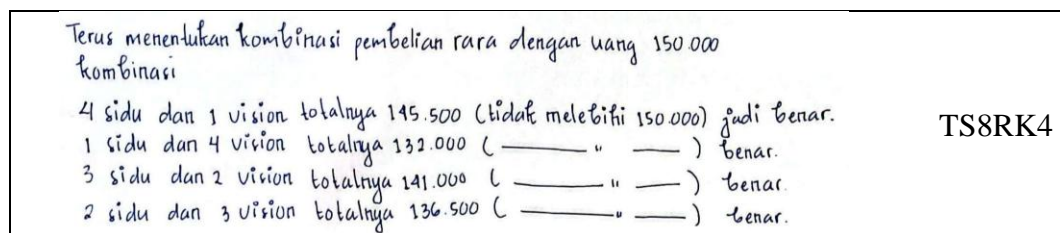 Terus menentukan kombinasi pembelian rara dengan uang 150.000
kombinasi
4 sidu dan 1 vision totalnya 145.500 (tidak melebihi 150.000) jadi benar.
1 sidu dan 4 vision totalnya 132.000 ( —— " —— ) benar.
3 sidu dan 2 vision totalnya 141.000 ( —— " —— ) benar.
2 sidu dan 3 vision totalnya 136.500 ( —— " —— ) benar.
TS8RK4